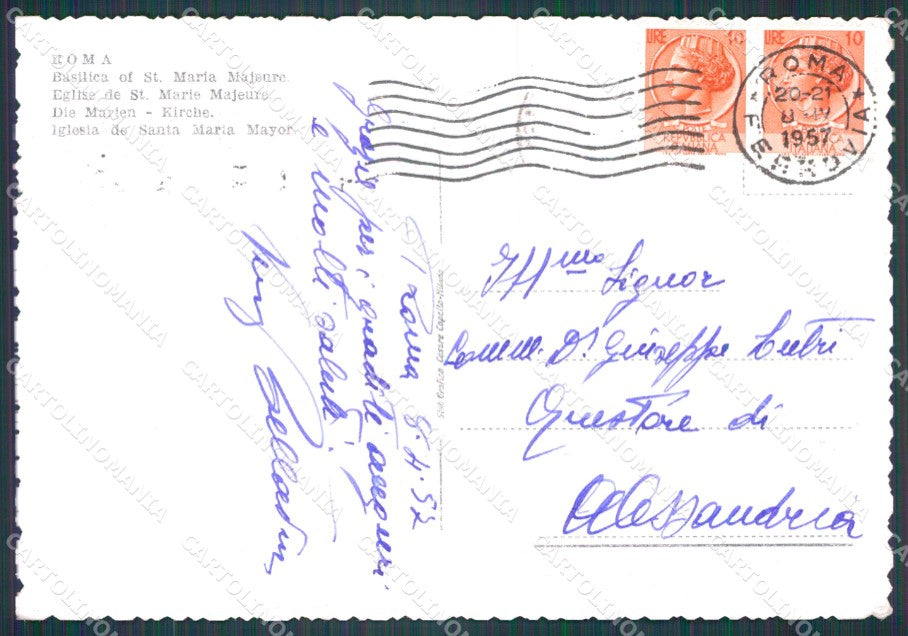 ROMA
Basilica of St. Maria Majeure.
Eglise de St. Marie Majeure.
Die Marien - Kirche.
Iglesia de Santa Maria Mayor.
LIRE 10
LIRE 10
REPVBBLICA ITALIANA
ROMA
20-21
1957
FERROVIA
Roma 8.4.57
Grazie per i graditi auguri
e molti saluti.
Ill.mo Signor
Comm. Dr. Giuseppe Cutrì
Questore di
Alessandria
CARTOLINOMANIA